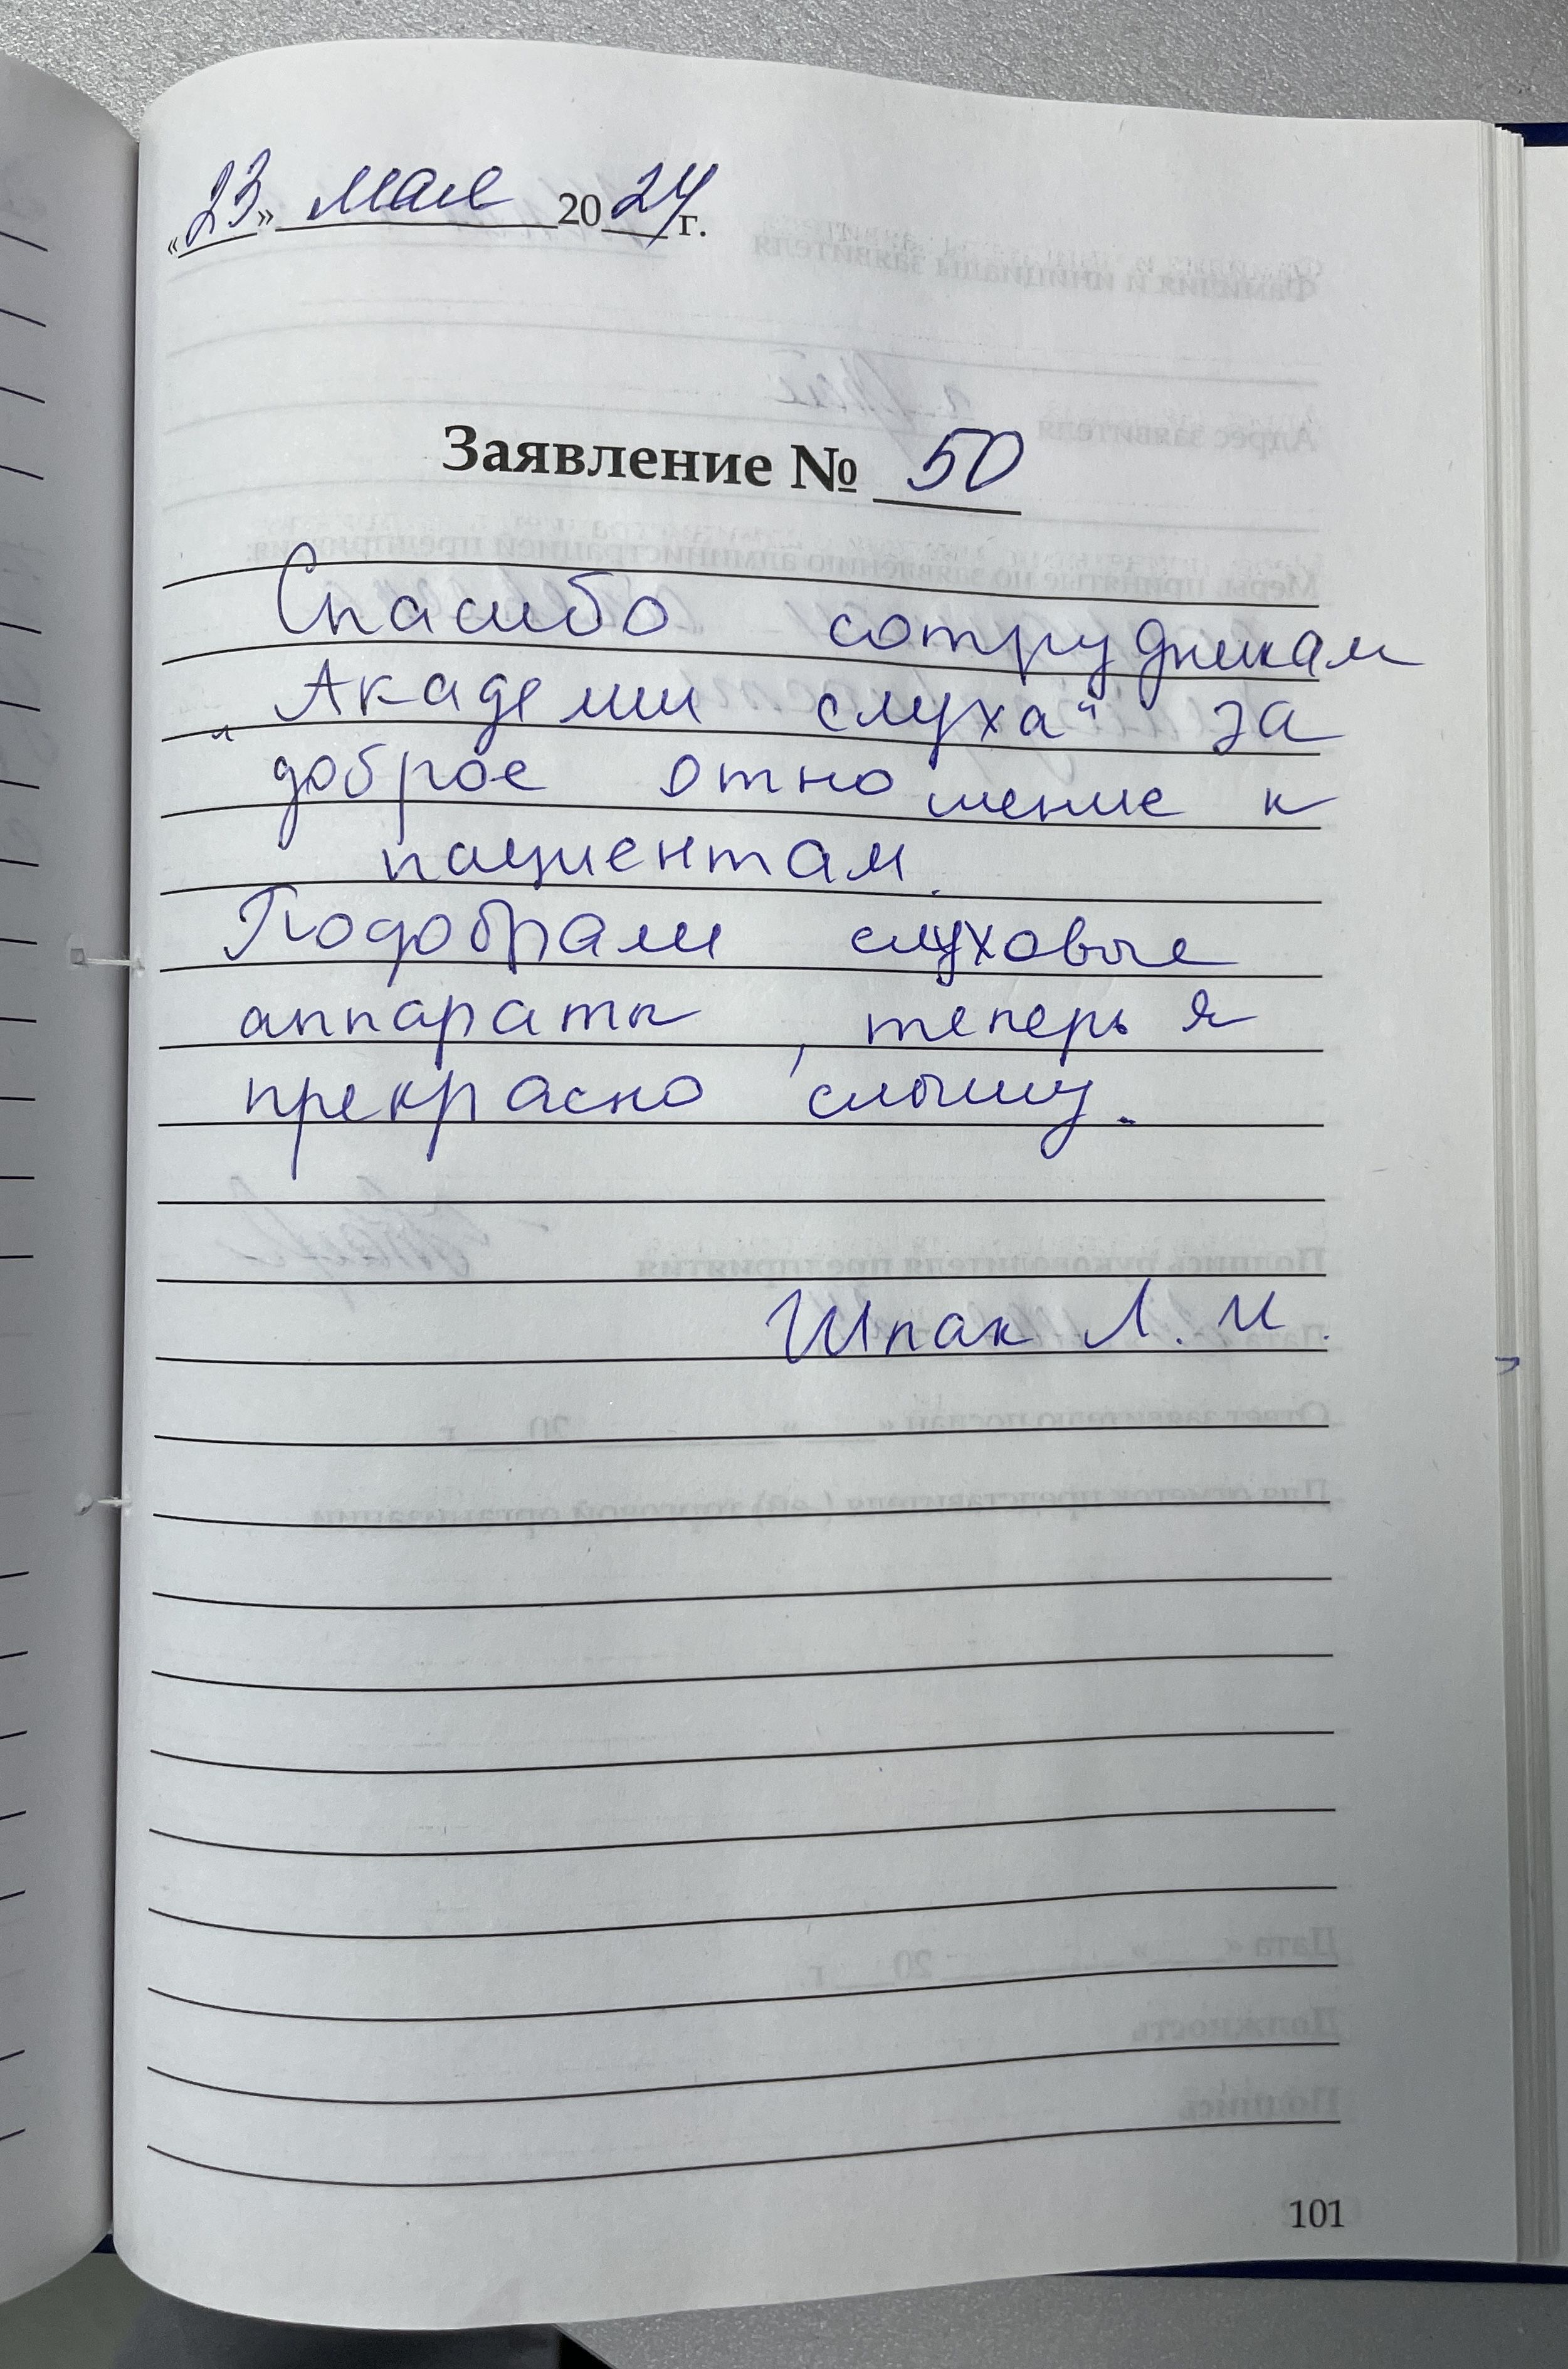 «23» мая 2024 г.
Заявление № 50
Спасибо сотрудникам
„Академии слуха" за
доброе отношение к
пациентам.
Подобрали слуховые
аппараты, теперь я
прекрасно слышу.
Шпак Л. И.
101